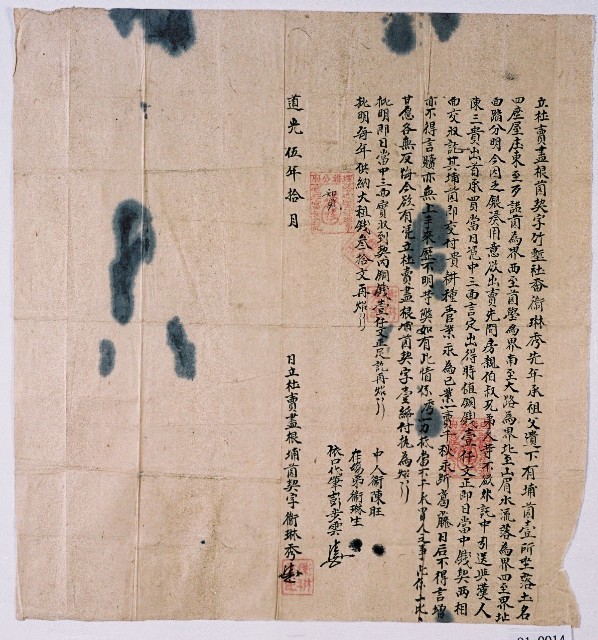 立杜賣盡根園契字竹塹社番衛琳秀先年承祖父遺下有埔園壹所坐落土名
四座屋庄東至乃諾園為界西至園墾為界南至大路為界北至山眉水流落為界四至界址
面踏分明今因乏銀湊用意欲出賣先問房親伯叔兄弟人等不欲外託中引送與漢人
陳三貴出首承買當日憑中三面言定出得時值銅錢壹仟文正即日當中錢契兩相
面交收訖其埔園即交付貴耕種管業永為己業一賣千秋永斷葛藤日后不得言增
亦不得言贖亦無上手來歷不明等獘如有此情係秀一力抵當不干承買人之事此係二比
甘愿各無反悔今欲有憑立杜賣盡根埔園契字壹紙付執為炤
批明即日當中三面實收到契內銅錢壹仟文正足訖再炤
批明每年供納大租錢叁拾文再炤
中人衛陳旺
在場弟衛琳生
依口代筆彭步雲
道光伍年拾月 日立杜賣盡根埔園契字衛琳秀